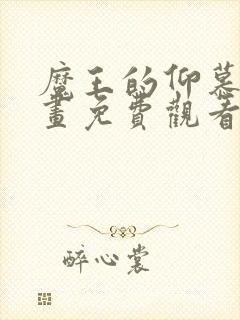 魔王的仰慕
畫免費觀看
醉心裳